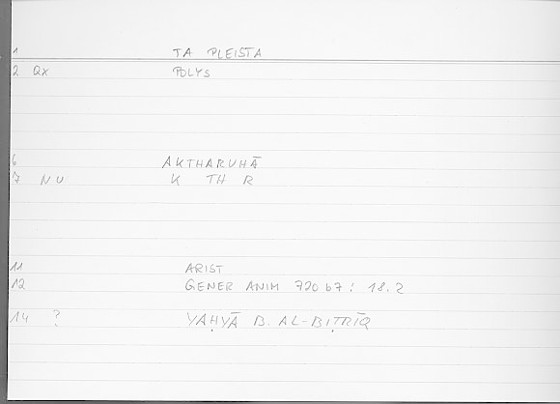 1 TA PLEISTA
2 QX POLYS
6 AKTHARUHĀ
7 NU K TH R
11 ARIST
12 GENER ANIM 720 b7 : 18.2
14 ? YAḤYĀ B. AL-BIṬRĪQ